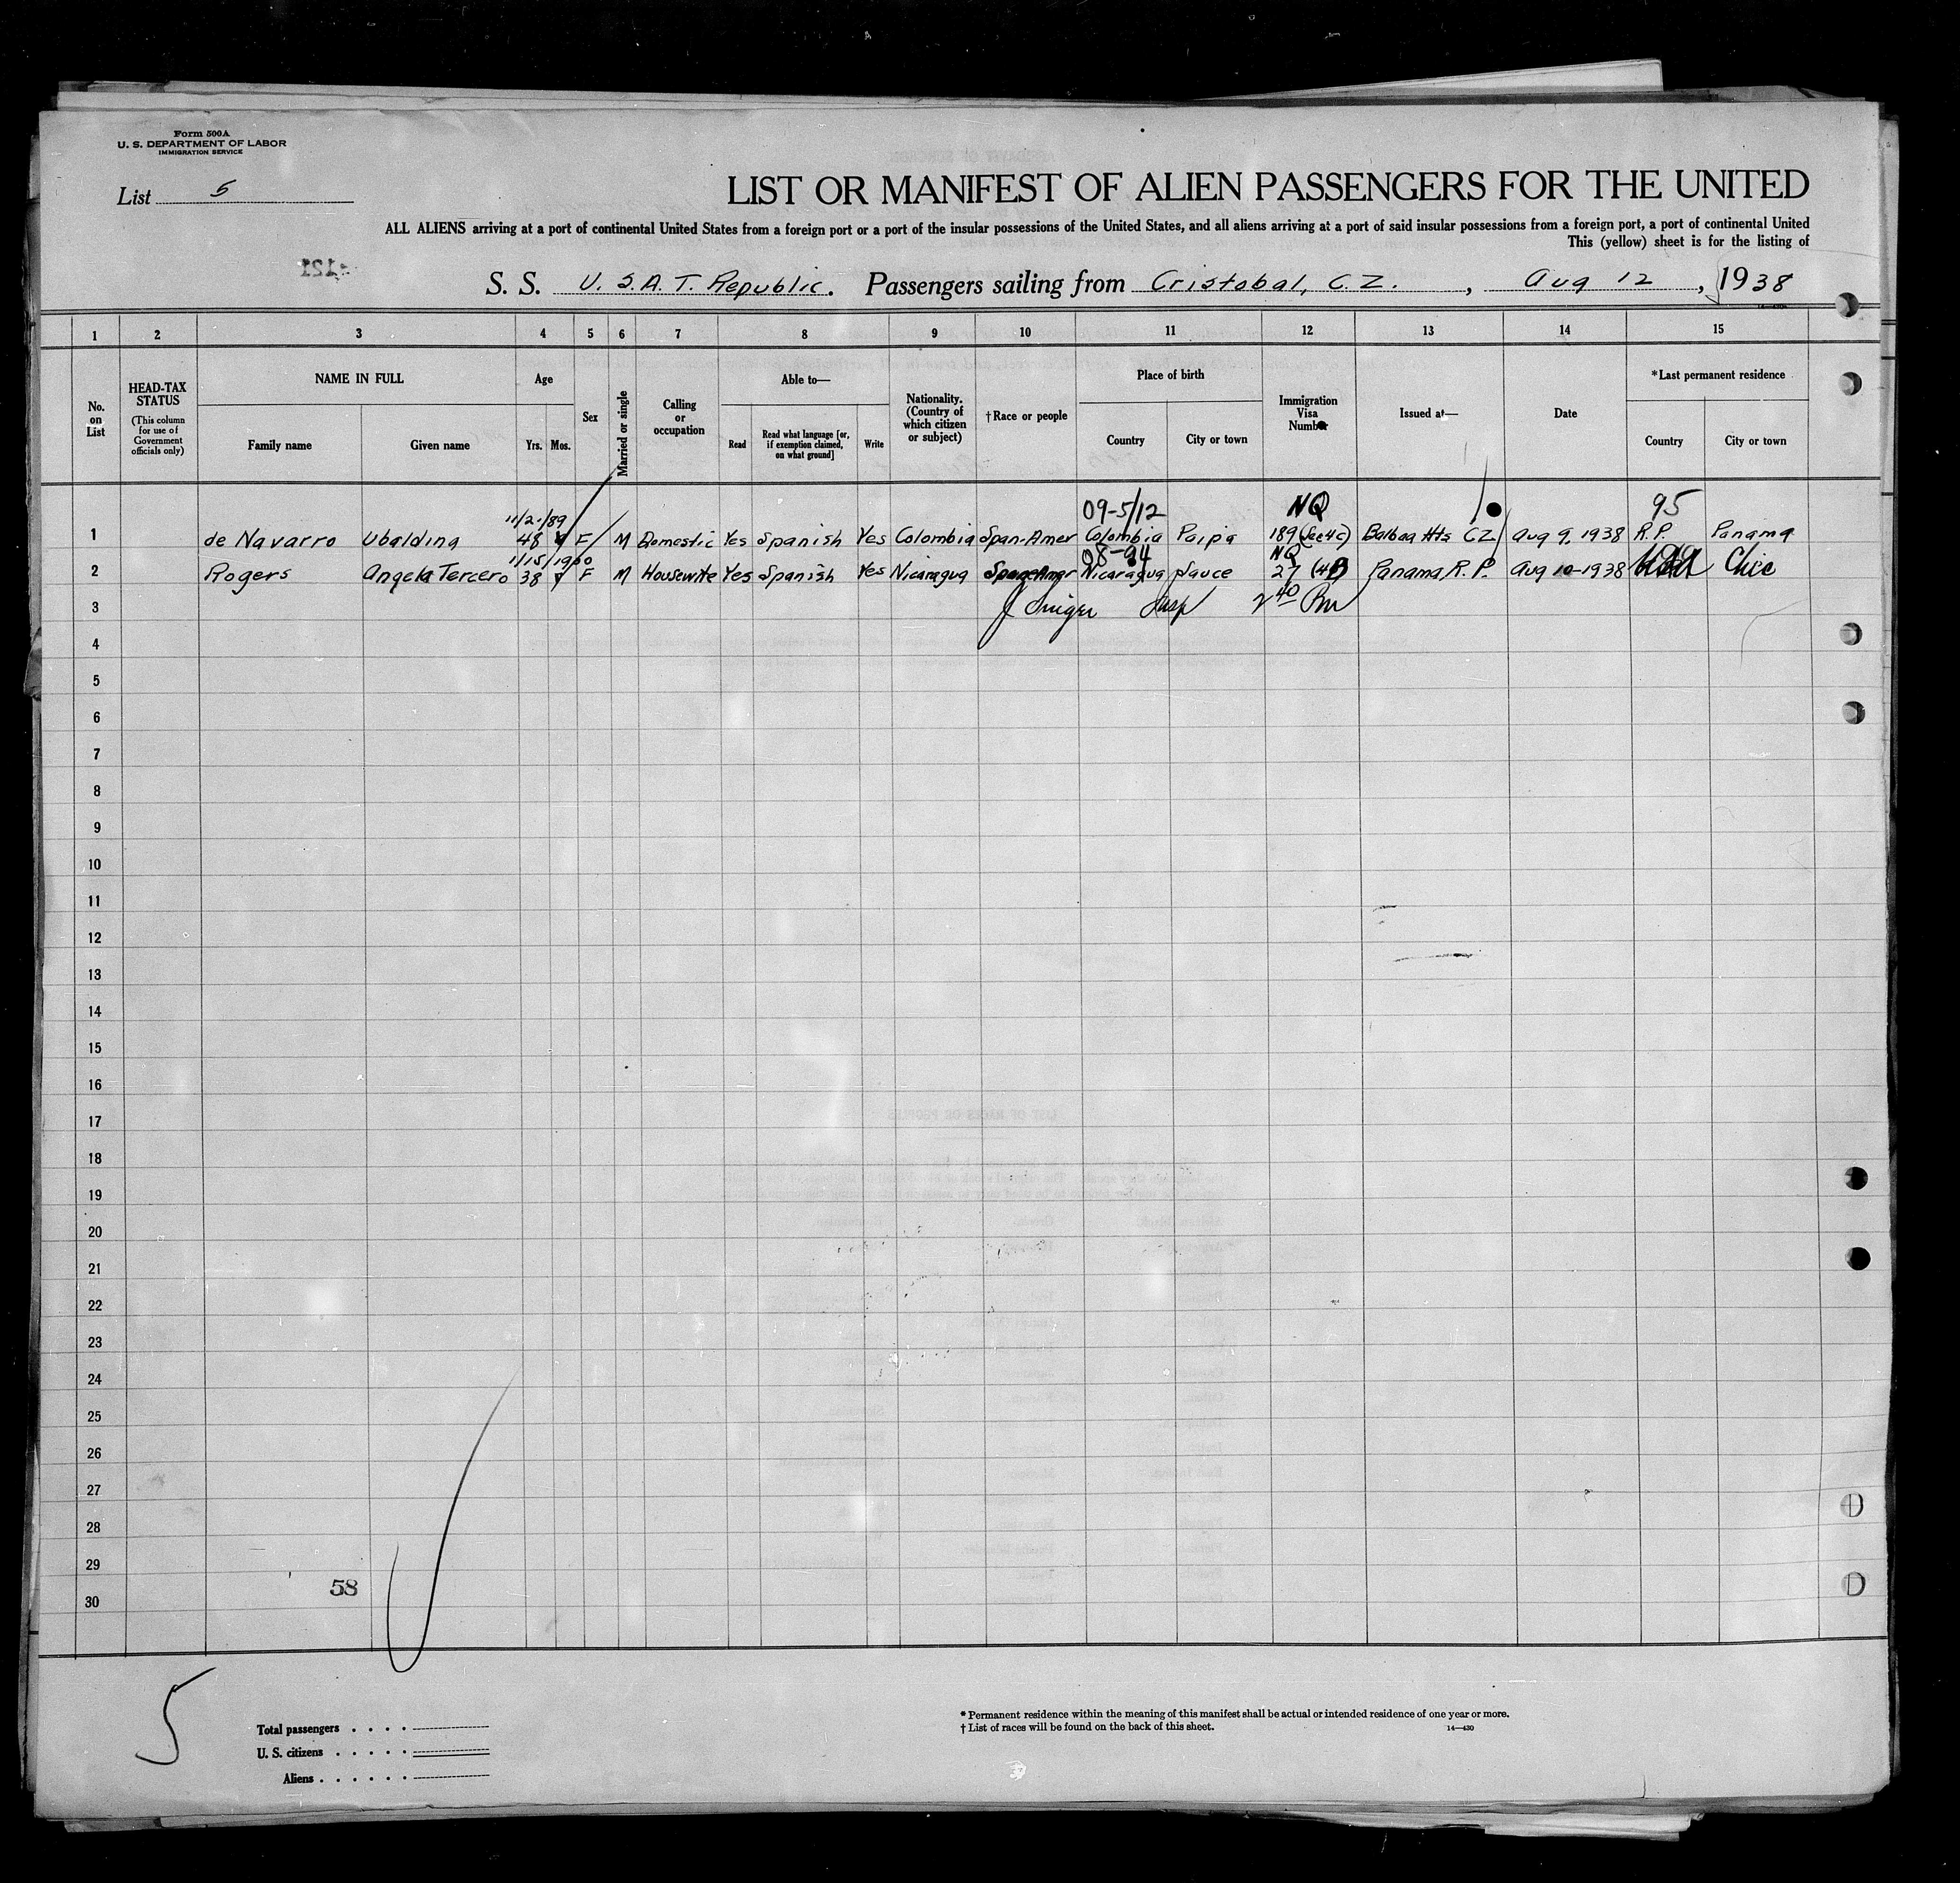 Form 500A
U. S. DEPARTMENT OF LABOR
IMMIGRATION SERVICE
List 5
LIST OR MANIFEST OF ALIEN PASSENGERS FOR THE UNITED
ALL ALIENS arriving at a port of continental United States from a foreign port or a port of the insular possessions of the United States, and all aliens arriving at a port of said insular possessions from a foreign port, a port of continental United
This (yellow) sheet is for the listing of
S. S. U. S.A. T. Republic. Passengers sailing from Cristobal, C. Z. , Aug 12 , 1938
1 2 3 4 5 6 7 8 9 10 11 12 13 14 15
No. on List
HEAD-TAX STATUS
(This column for use of Government officials only)
NAME IN FULL
Family name Given name
Age
Yrs. Mos.
Sex
Married or single
Calling or occupation
Able to—
Read Read what language [or, if exemption claimed, on what ground] Write
Nationality. (Country of which citizen or subject)
†Race or people
Place of birth
Country City or town
Immigration Visa Number
Issued at—
Date
*Last permanent residence
Country City or town
11/2/89 09-5/12 NQ 95
1 de Navarro Ubaldina 48 F M Domestic Yes Spanish Yes Colombia Span-Amer Colombia Paipa 189 (Sec 4c) Balboa Hts CZ Aug 9, 1938 R.P. Panama
1/15/1900 08-94 NQ
2 Rogers Angela Tercero 38 F M Housewife Yes Spanish Yes Nicaragua Span-Amer Nicaragua Sauce 27 (4B) Panama, R.P. Aug 10-1938
3 Insp 2 40 Pm
4
5
6
7
8
9
10
11
12
13
14
15
16
17
18
19
20
21
22
23
24
25
26
27
28
29
58
30
5
Total passengers
U. S. citizens
Aliens
* Permanent residence within the meaning of this manifest shall be actual or intended residence of one year or more.
† List of races will be found on the back of this sheet.
14—430